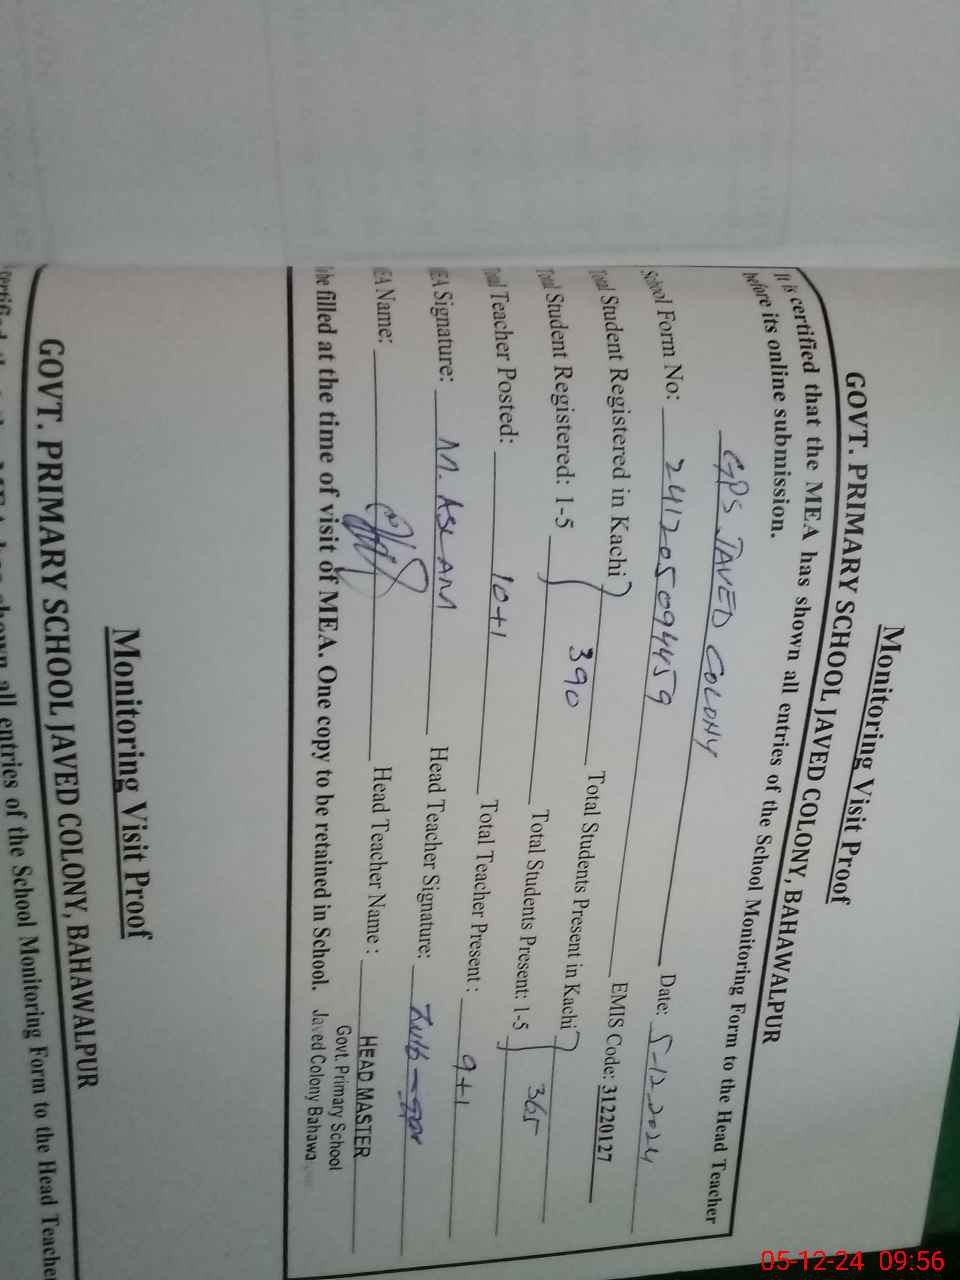 Monitoring Visit Proof
GOVT. PRIMARY SCHOOL JAVED COLONY, BAHAWALPUR
It is certified that the MEA has shown all entries of the School Monitoring Form to the Head Teacher
before its online submission.
GPS JAVED COLONY Date: 5-12-2024
School Form No: 241205094459 EMIS Code: 31220127
Total Student Registered in Kachi Total Students Present in Kachi
390 365
Total Student Registered: 1-5 Total Students Present: 1-5
Total Teacher Posted: 10+1 Total Teacher Present : 9+1
MEA Signature: M. ASLAM Head Teacher Signature:
MEA Name: Head Teacher Name : HEAD MASTER
Govt. Primary School
To be filled at the time of visit of MEA. One copy to be retained in School. Javed Colony Bahawa
Monitoring Visit Proof
GOVT. PRIMARY SCHOOL JAVED COLONY, BAHAWALPUR
certified that the MEA has shown all entries of the School Monitoring Form to the Head Teacher
05-12-24 09:56